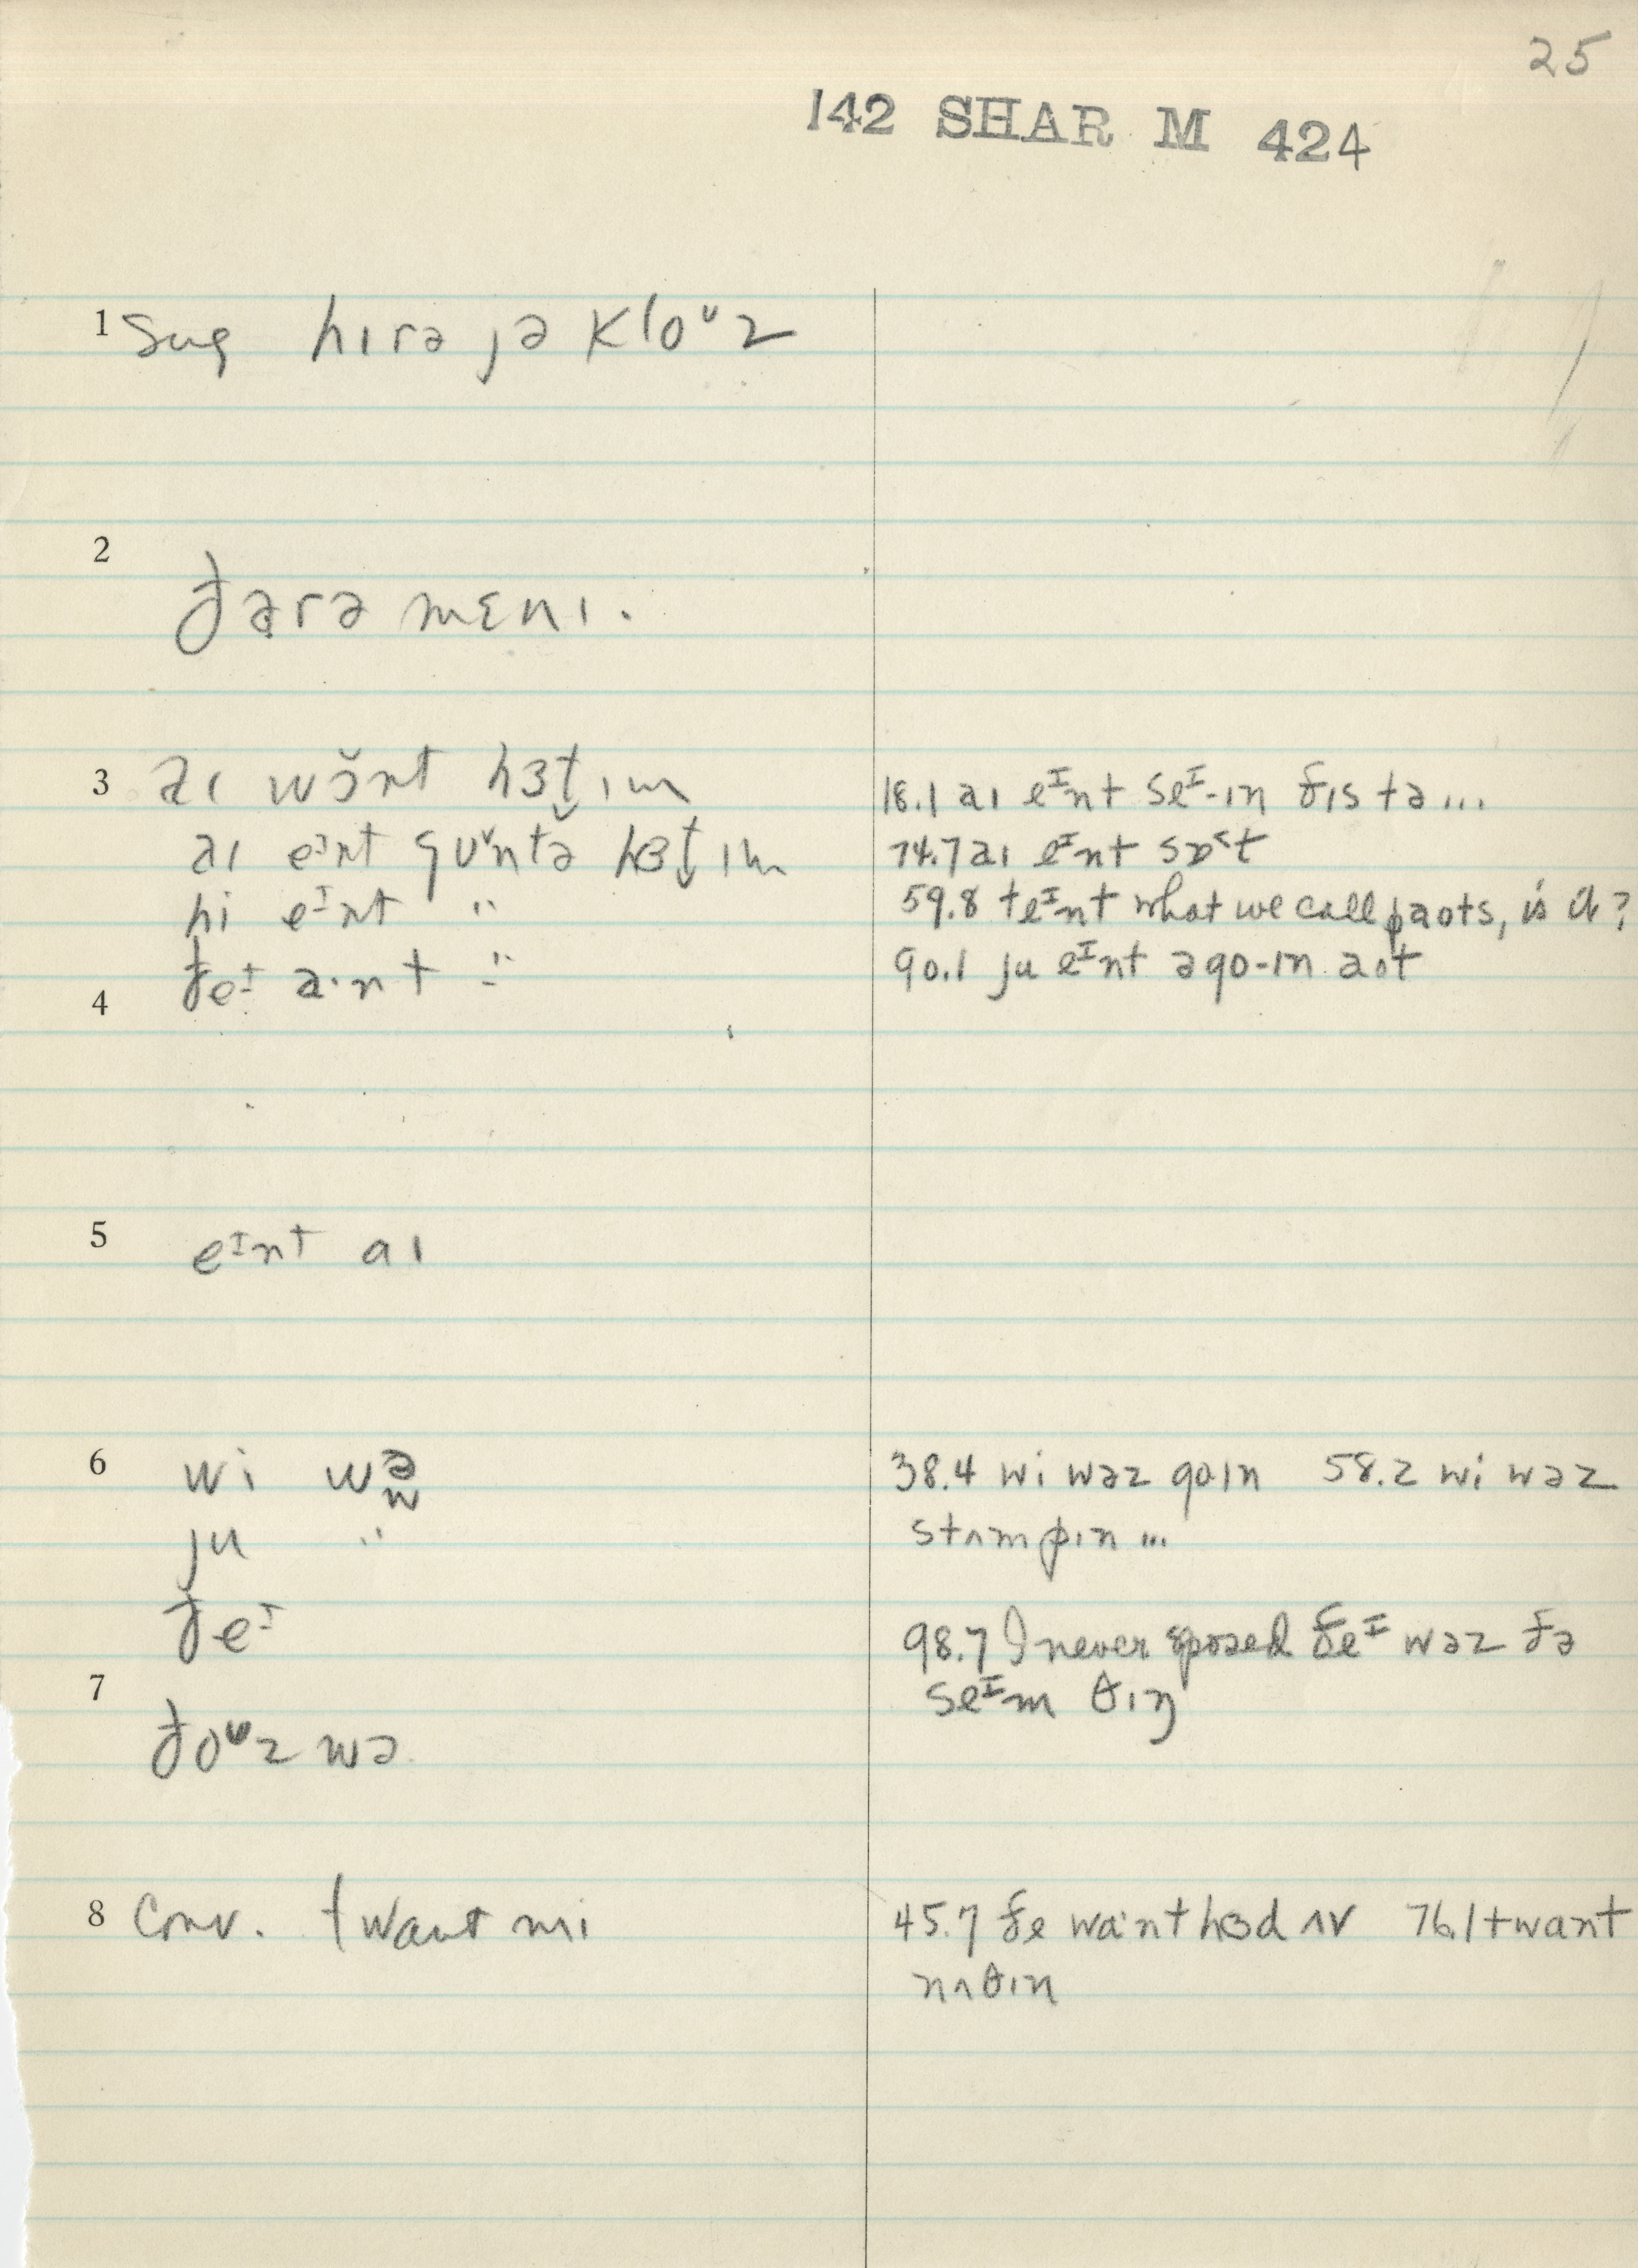 25
142 SHAR M 424
1 sug hɪrə jə kloᶷz
2
ðərə mɛnɪ.
3 aɪ wɔ̆nt hɜt̬ ɪm
aɪ eᴵnt gʊᵛntə hɜt̬ ɪm
hi eᴵnt "
ðeᴵ a·nt "
4
5 eᴵnt aɪ
6 wi wə
ju "
ðeᴵ
7
ðoᶷz wə
8 Conv. twant mi
18.1 aɪ eᴵnt seᴵ-ɪn ðɪs tə ...
74.7 aɪ eᴵnt sɒ˂t
59.8 teᴵnt what we call paɒts, is it?
90.1 ju eᴵnt əgo-ɪn aʊt
38.4 wi wəz goɪn 58.2 wi wəz
stʌmpɪn ...
98.7 I never sposed ðeᴵ wəz ðə
seᴵm θɪŋ
45.7 ðe wa·nt hɜd ʌv 76.1 twant
nʌθɪn